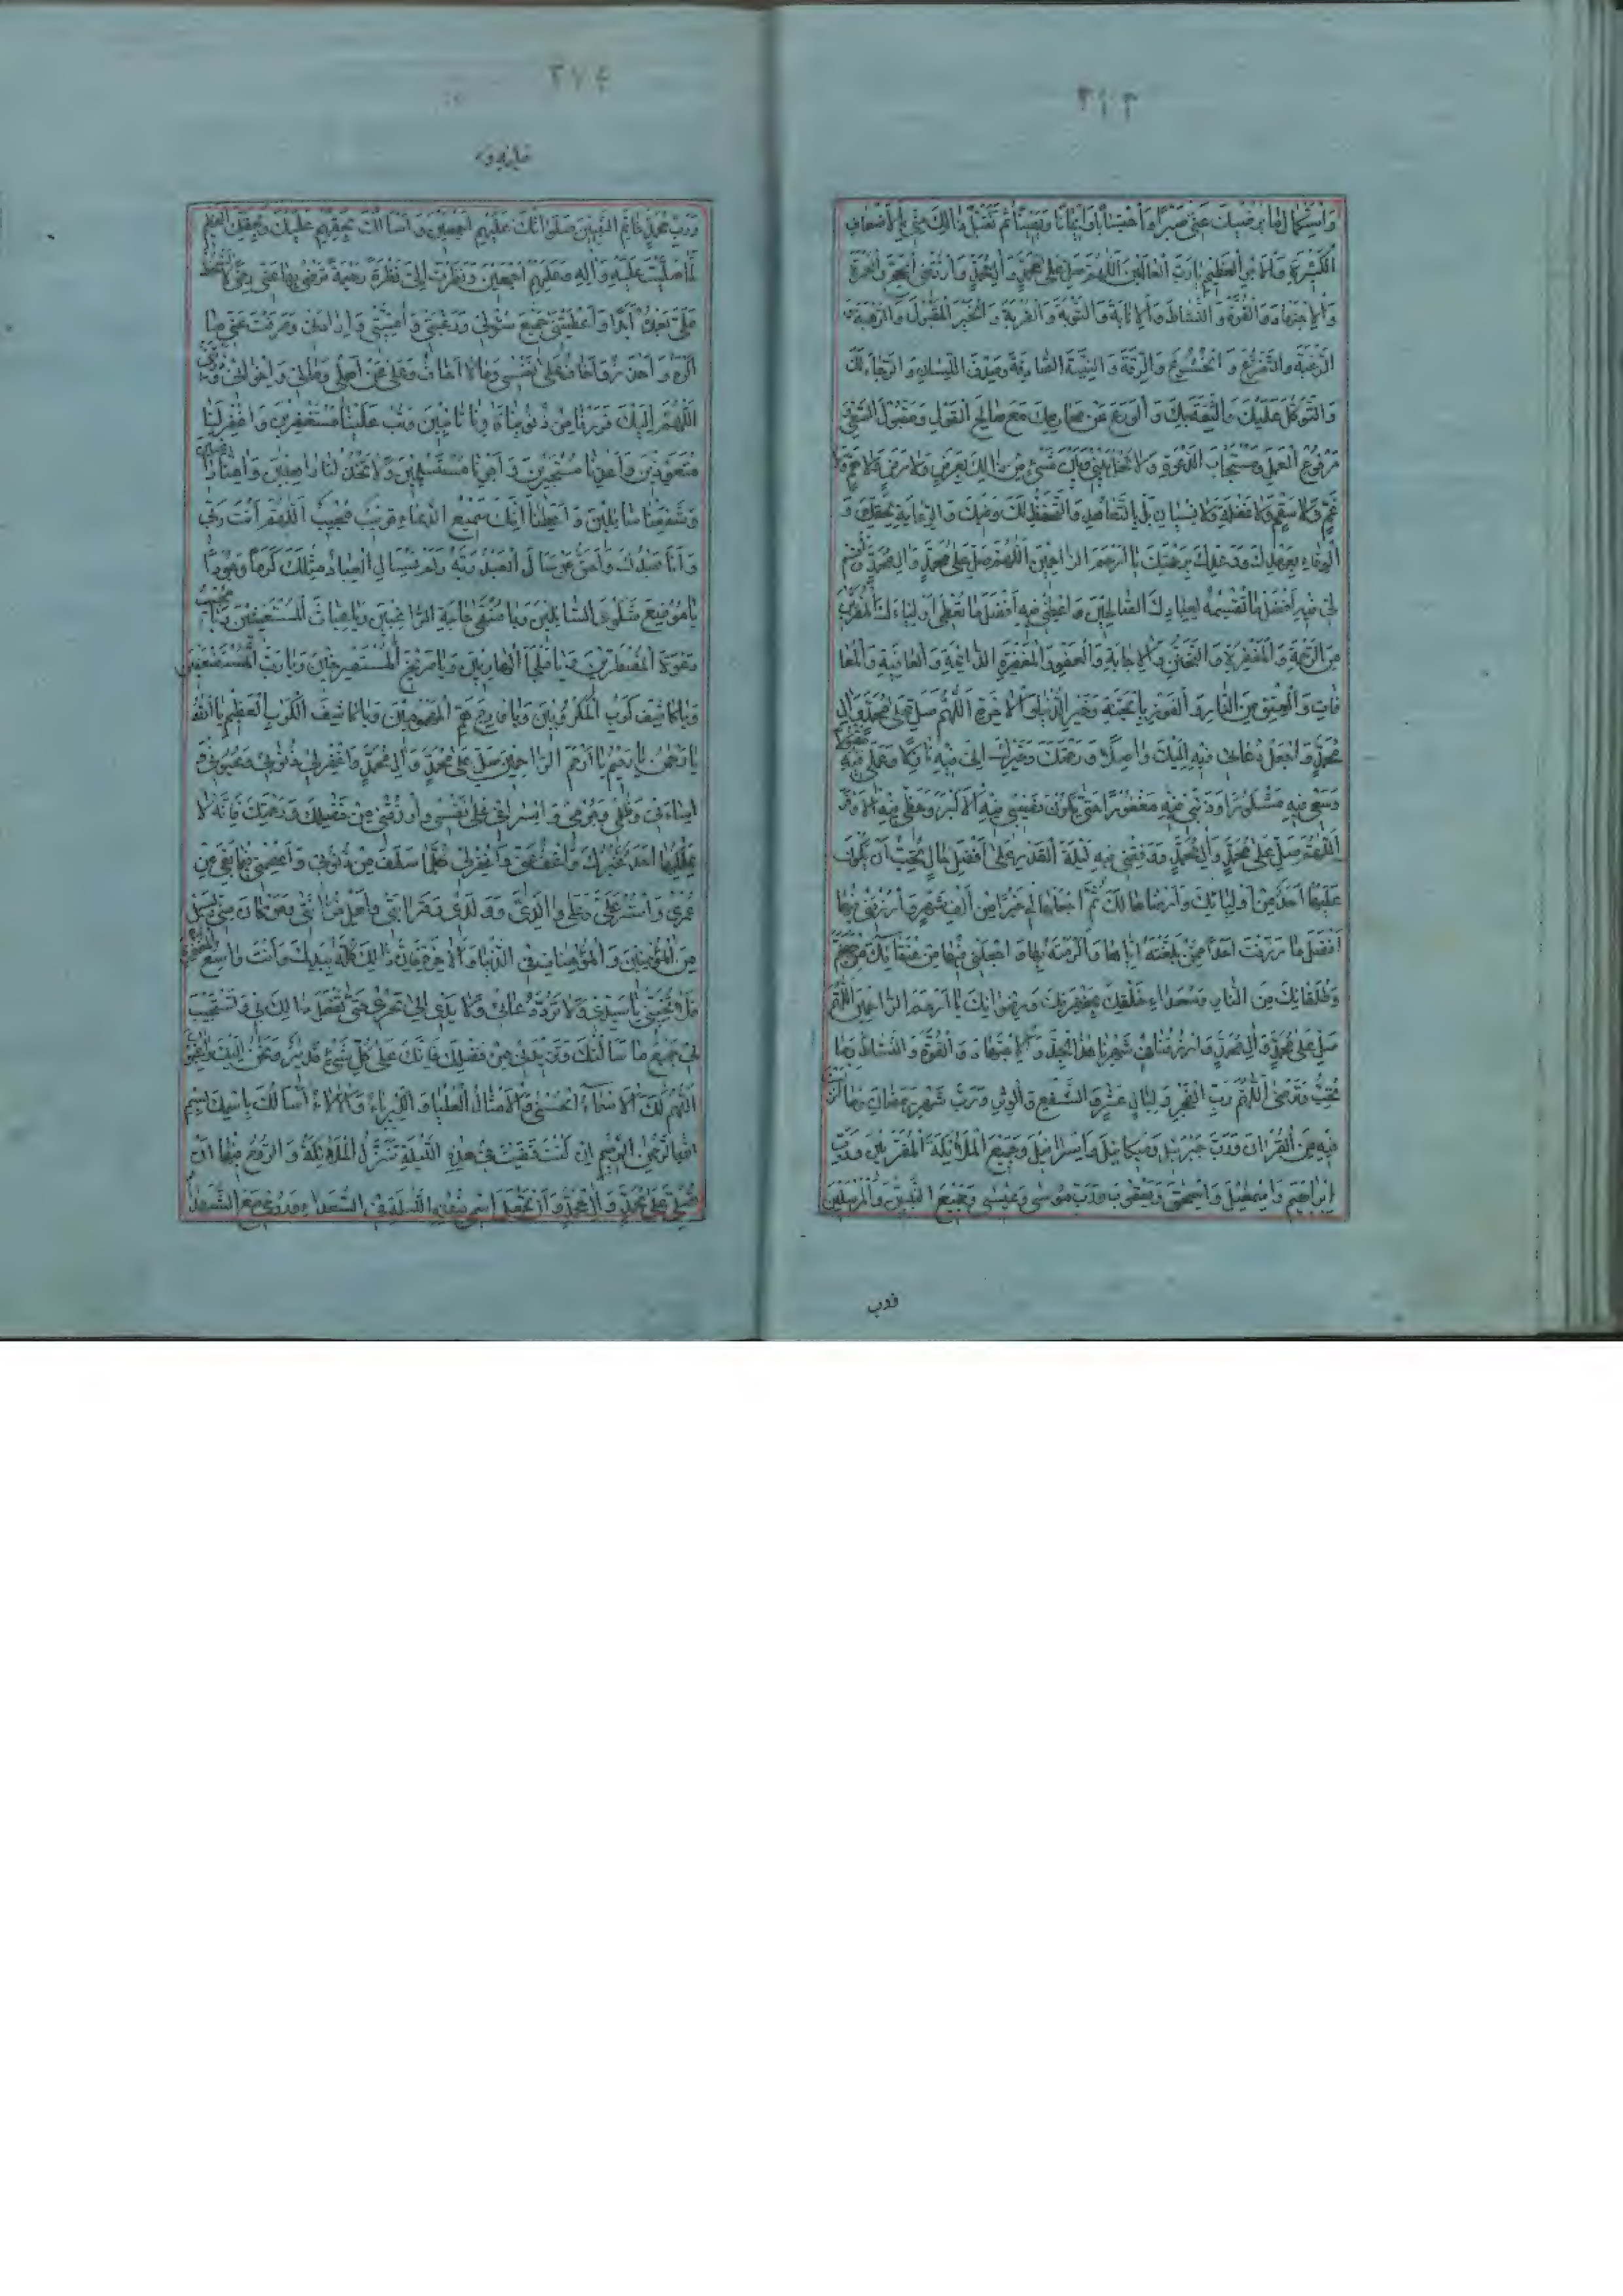 ٣١٣
وَاسْتِكْمَالِ مَا يُرْضِيكَ عَنِّي صَبْرًا وَاحْتِسَابًا وَاِيمَانًا وَيَقِينًا ثُمَّ تَقَبَّلْ ذٰلِكَ مِنِّي بِالْاَضْعَافِ
الْكَثِيرَةِ وَالْاَجْرِ الْعَظِيمِ يَا رَبَّ الْعَالَمِينَ اَللّٰهُمَّ صَلِّ عَلٰى مُحَمَّدٍ وَآلِ مُحَمَّدٍ وَارْزُقْنِي الْحَجَّ وَالْعُمْرَةَ
وَالْاِجْتِهَادَ وَالْقُوَّةَ وَالنَّشَاطَ وَالْاِنَابَةَ وَالتَّوْبَةَ وَالْقُرْبَةَ وَالْخَيْرَ الْمَقْبُولَ وَالرَّهْبَةَ وَ
الرَّغْبَةَ وَالتَّضَرُّعَ وَالْخُشُوعَ وَالرِّقَّةَ وَالنِّيَّةَ الصَّادِقَةَ وَصِدْقَ اللِّسَانِ وَالرَّجَاءَ لَكَ
وَالتَّوَكُّلَ عَلَيْكَ وَالثِّقَةَ بِكَ وَالْوَرَعَ عَنْ مَحَارِمِكَ مَعَ صَالِحِ الْقَوْلِ وَمَقْبُولِ السَّعْيِ
مَرْفُوعِ الْعَمَلِ وَمُسْتَجَابِ الدَّعْوَةِ وَلَا تَحُلْ بَيْنِي وَبَيْنَ شَيْءٍ مِنْ ذٰلِكَ بِعَرَضٍ وَلَا مَرَضٍ وَلَا هَمٍّ وَلَا
غَمٍّ وَلَا سُقْمٍ وَلَا غَفْلَةٍ وَلَا نِسْيَانٍ بَلْ بِالتَّعَاهُدِ وَالتَّحَفُّظِ لَكَ وَفِيكَ وَالرِّعَايَةِ لِحَقِّكَ وَ
الْوَفَاءِ بِعَهْدِكَ وَوَعْدِكَ بِرَحْمَتِكَ يَا اَرْحَمَ الرَّاحِمِينَ اَللّٰهُمَّ صَلِّ عَلٰى مُحَمَّدٍ وَآلِ مُحَمَّدٍ وَاقْسِمْ
لِي فِيهِ اَفْضَلَ مَا تَقْسِمُهُ لِعِبَادِكَ الصَّالِحِينَ وَاَعْطِنِي فِيهِ اَفْضَلَ مَا تُعْطِي اَوْلِيَاءَكَ الْمُقَرَّبِينَ
مِنَ الرَّحْمَةِ وَالْمَغْفِرَةِ وَالتَّحَنُّنِ وَالْاِجَابَةِ وَالْعَفْوِ وَالْمَغْفِرَةِ الدَّائِمَةِ وَالْعَافِيَةِ وَالْمُعَا
فَاتِ وَالْعِتْقِ مِنَ النَّارِ وَالْفَوْزِ بِالْجَنَّةِ وَخَيْرِ الدُّنْيَا وَالْاٰخِرَةِ اَللّٰهُمَّ صَلِّ عَلٰى مُحَمَّدٍ وَآلِ
مُحَمَّدٍ وَاجْعَلْ دُعَائِي فِيهِ اِلَيْكَ وَاصِلًا وَرَحْمَتَكَ وَخَيْرَكَ اِلَيَّ فِيهِ نَازِلًا وَعَمَلِي فِيهِ مَقْبُولًا
وَسَعْيِي فِيهِ مَشْكُورًا وَذَنْبِي فِيهِ مَغْفُورًا حَتّٰى يَكُونَ نَصِيبِي فِيهِ الْاَكْبَرَ وَحَظِّي فِيهِ الْاَوْفَرَ
اَللّٰهُمَّ صَلِّ عَلٰى مُحَمَّدٍ وَآلِ مُحَمَّدٍ وَوَفِّقْنِي فِيهِ لِلَيْلَةِ الْقَدْرِ عَلٰى اَفْضَلِ حَالٍ تُحِبُّ اَنْ يَكُونَ
عَلَيْهَا اَحَدٌ مِنْ اَوْلِيَائِكَ وَاَرْضَاهَا لَكَ ثُمَّ اجْعَلْهَا لِي خَيْرًا مِنْ اَلْفِ شَهْرٍ وَارْزُقْنِي فِيهَا
اَفْضَلَ مَا رَزَقْتَ اَحَدًا مِمَّنْ بَلَّغْتَهُ اِيَّاهَا وَاَكْرَمْتَهُ بِهَا وَاجْعَلْنِي فِيهَا مِنْ عُتَقَائِكَ مِنْ جَهَنَّمَ
وَطُلَقَائِكَ مِنَ النَّارِ وَسُعَدَاءِ خَلْقِكَ بِمَغْفِرَتِكَ وَرِضْوَانِكَ يَا اَرْحَمَ الرَّاحِمِينَ اَللّٰهُمَّ
صَلِّ عَلٰى مُحَمَّدٍ وَآلِ مُحَمَّدٍ وَارْزُقْنَا فِي شَهْرِنَا هٰذَا الْجِدَّ وَالْاِجْتِهَادَ وَالْقُوَّةَ وَالنَّشَاطَ وَمَا
تُحِبُّ وَتَرْضٰى اَللّٰهُمَّ رَبَّ الْفَجْرِ وَلَيَالٍ عَشْرٍ وَالشَّفْعِ وَالْوَتْرِ وَرَبَّ شَهْرِ رَمَضَانَ وَمَا اَنْزَلْتَ
فِيهِ مِنَ الْقُرْاٰنِ وَرَبَّ جَبْرَئِيلَ وَمِيكَائِيلَ وَاِسْرَافِيلَ وَجَمِيعِ الْمَلَائِكَةِ الْمُقَرَّبِينَ وَرَبَّ
اِبْرَاهِيمَ وَاِسْمٰعِيلَ وَاِسْحٰقَ وَيَعْقُوبَ وَرَبَّ مُوسٰى وَعِيسٰى وَجَمِيعِ النَّبِيِّينَ وَالْمُرْسَلِينَ
وَرَبَّ
٣١٤
وَرَبَّ مُحَمَّدٍ خَاتَمِ النَّبِيِّينَ صَلَوَاتُكَ عَلَيْهِمْ اَجْمَعِينَ وَاَسْاَلُكَ بِحَقِّهِمْ عَلَيْكَ وَبِحَقِّكَ الْعَظِيمِ
لَمَّا صَلَّيْتَ عَلَيْهِ وَآلِهِ وَعَلَيْهِمْ اَجْمَعِينَ وَنَظَرْتَ اِلَيَّ نَظْرَةً رَحِيمَةً تَرْضٰى بِهَا عَنِّي رِضًى لَا سَخَطَ
عَلَيَّ بَعْدَهُ اَبَدًا وَاَعْطَيْتَنِي جَمِيعَ سُؤْلِي وَرَغْبَتِي وَاُمْنِيَّتِي وَاِرَادَتِي وَصَرَفْتَ عَنِّي مَا
اَكْرَهُ وَاَحْذَرُ وَاَخَافُ عَلٰى نَفْسِي وَمَا لَا اَخَافُ وَعَنْ اَهْلِي وَمَالِي وَاِخْوَانِي وَذُرِّيَّتِي
اَللّٰهُمَّ اِلَيْكَ فَرَرْنَا مِنْ ذُنُوبِنَا فَاٰوِنَا تَائِبِينَ وَتُبْ عَلَيْنَا مُسْتَغْفِرِينَ وَاغْفِرْ لَنَا
مُتَعَوِّذِينَ وَاَعِذْنَا مُسْتَجِيرِينَ وَاَجِرْنَا مُسْتَسْلِمِينَ وَلَا تَخْذُلْنَا رَاهِبِينَ وَاٰمِنَّا رَاغِبِينَ
وَشَفِّعْنَا سَائِلِينَ وَاَعْطِنَا اِنَّكَ سَمِيعُ الدُّعَاءِ قَرِيبٌ مُجِيبٌ اَللّٰهُمَّ اَنْتَ رَبِّي
وَاَنَا عَبْدُكَ وَاَحَقُّ مَنْ سَاَلَ الْعَبْدُ رَبَّهُ وَلَمْ يَسْاَلِ الْعِبَادُ مِثْلَكَ كَرَمًا وَجُودًا
يَا مَوْضِعَ شَكْوَى السَّائِلِينَ وَيَا مُنْتَهٰى حَاجَةِ الرَّاغِبِينَ وَيَا غِيَاثَ الْمُسْتَغِيثِينَ وَيَا مُجِيبَ
دَعْوَةِ الْمُضْطَرِّينَ وَيَا مَلْجَاَ الْهَارِبِينَ وَيَا صَرِيخَ الْمُسْتَصْرِخِينَ وَيَا رَبَّ الْمُسْتَضْعَفِينَ
وَيَا كَاشِفَ كَرْبِ الْمَكْرُوبِينَ وَيَا فَارِجَ هَمِّ الْمَهْمُومِينَ وَيَا كَاشِفَ الْكَرْبِ الْعَظِيمِ يَا اَللّٰهُ
يَا رَحْمٰنُ يَا رَحِيمُ يَا اَرْحَمَ الرَّاحِمِينَ صَلِّ عَلٰى مُحَمَّدٍ وَآلِ مُحَمَّدٍ وَاغْفِرْ لِي ذُنُوبِي وَعُيُوبِي وَ
اِسَاءَتِي وَظُلْمِي وَجُرْمِي وَاِسْرَافِي عَلٰى نَفْسِي وَارْزُقْنِي مِنْ فَضْلِكَ وَرَحْمَتِكَ فَاِنَّهُ لَا
يَمْلِكُهَا اَحَدٌ غَيْرُكَ وَاعْفُ عَنِّي وَاغْفِرْ لِي كُلَّمَا سَلَفَ مِنْ ذُنُوبِي وَاعْصِمْنِي فِيمَا بَقِيَ مِنْ
عُمْرِي وَاسْتُرْ عَلَيَّ وَعَلٰى وَالِدَيَّ وَوَلَدِي وَقَرَابَتِي وَاَهْلِ حُزَانَتِي وَمَنْ كَانَ مِنِّي بِسَبِيلٍ
مِنَ الْمُؤْمِنِينَ وَالْمُؤْمِنَاتِ فِي الدُّنْيَا وَالْاٰخِرَةِ فَاِنَّ ذٰلِكَ كُلَّهُ بِيَدِكَ وَاَنْتَ وَاسِعُ الْمَغْفِرَةِ
فَلَا تُخَيِّبْنِي يَا سَيِّدِي وَلَا تَرُدَّ دُعَائِي وَلَا يَدِي اِلٰى نَحْرِي حَتّٰى تَفْعَلَ ذٰلِكَ بِي وَتَسْتَجِيبَ
لِي جَمِيعَ مَا سَاَلْتُكَ وَتَزِيدَنِي مِنْ فَضْلِكَ فَاِنَّكَ عَلٰى كُلِّ شَيْءٍ قَدِيرٌ وَنَحْنُ اِلَيْكَ رَاغِبُونَ
اَللّٰهُمَّ لَكَ الْاَسْمَاءُ الْحُسْنٰى وَالْاَمْثَالُ الْعُلْيَا وَالْكِبْرِيَاءُ وَالْاٰلَاءُ اَسْاَلُكَ بِاسْمِكَ بِسْمِ
اللّٰهِ الرَّحْمٰنِ الرَّحِيمِ اِنْ كُنْتَ قَضَيْتَ فِي هٰذِهِ اللَّيْلَةِ تَنَزُّلَ الْمَلَائِكَةِ وَالرُّوحِ فِيهَا اَنْ
تُصَلِّيَ عَلٰى مُحَمَّدٍ وَآلِ مُحَمَّدٍ وَاَنْ تَجْعَلَ اسْمِي فِي هٰذِهِ اللَّيْلَةِ فِي السُّعَدَاءِ وَرُوحِي مَعَ الشُّهَدَاءِ